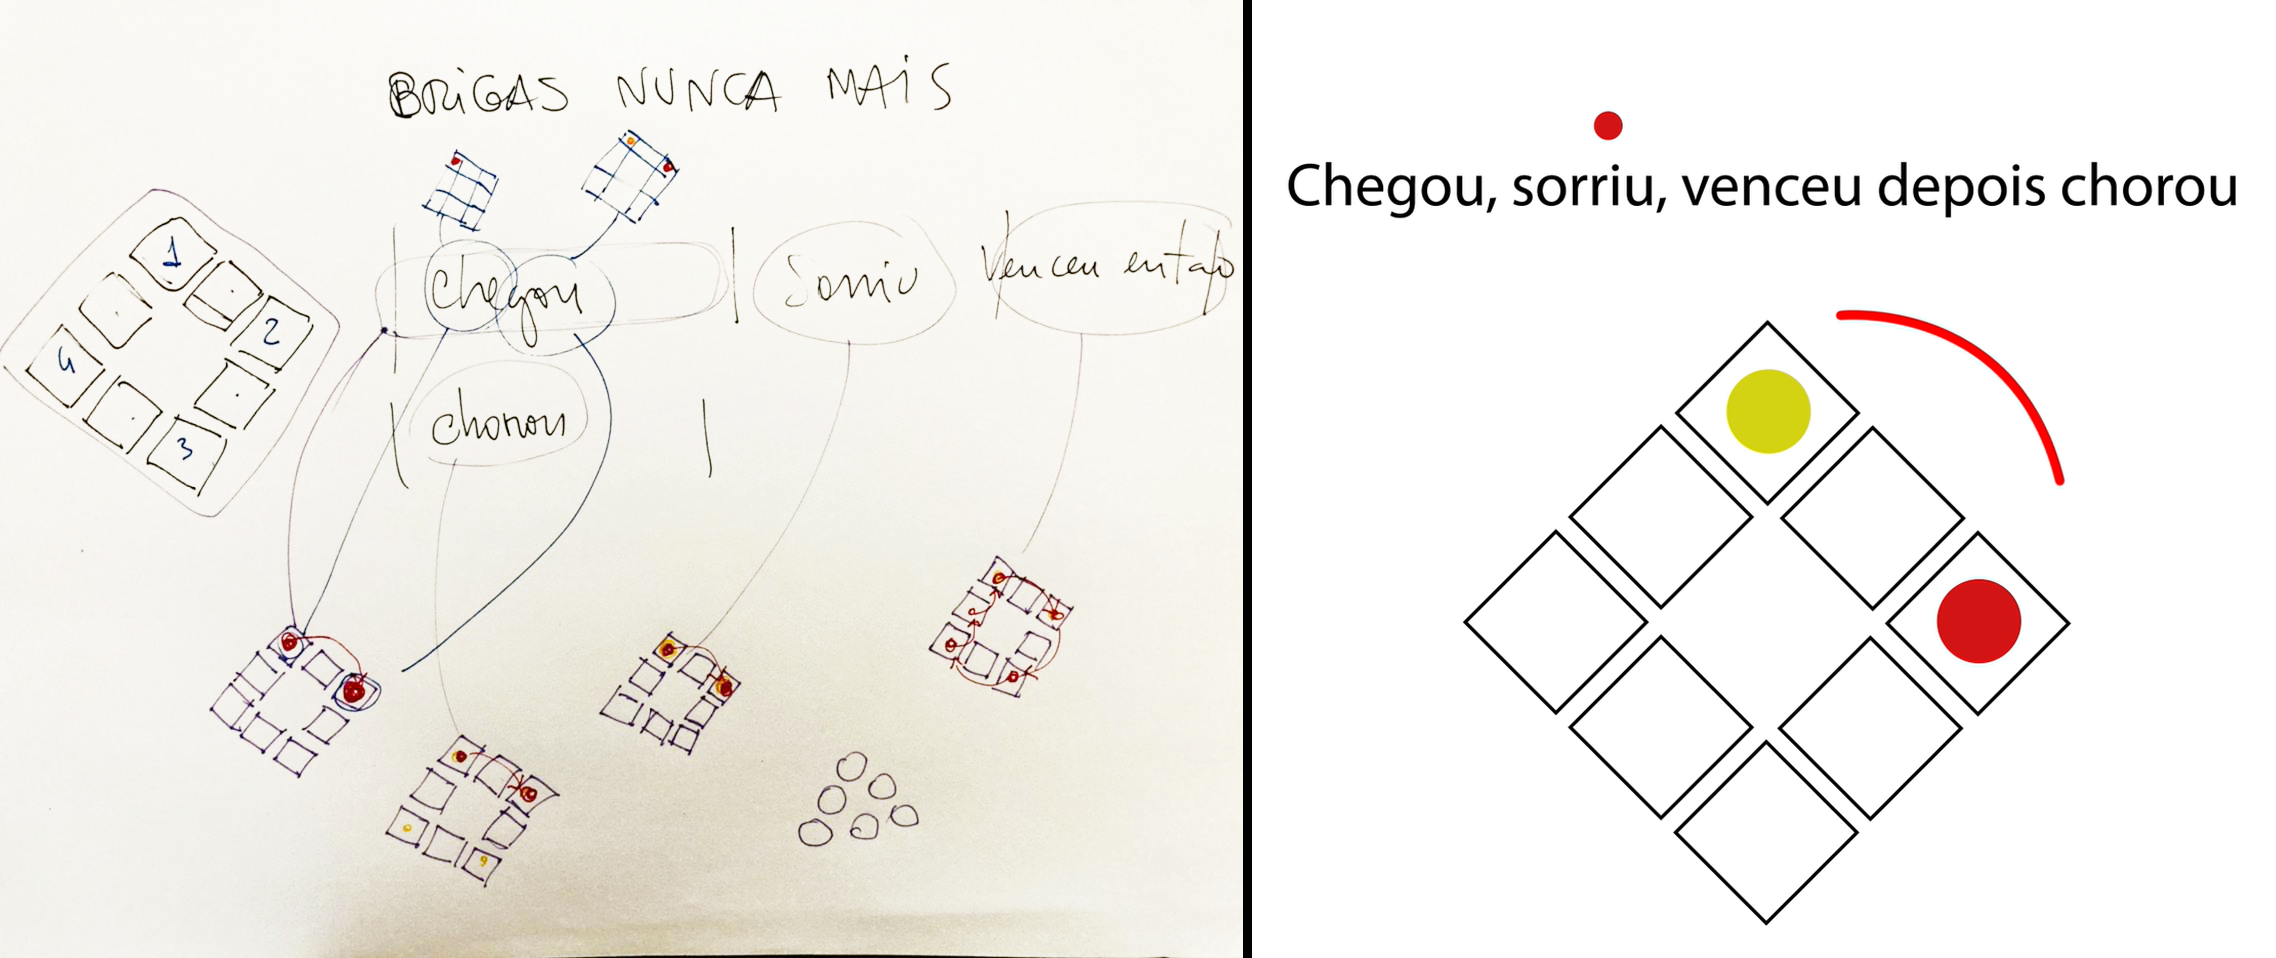 BRIGAS NUNCA MAIS
1
2
4
3
chegou
Sorriu
Venceu então
chorou
Chegou, sorriu, venceu depois chorou